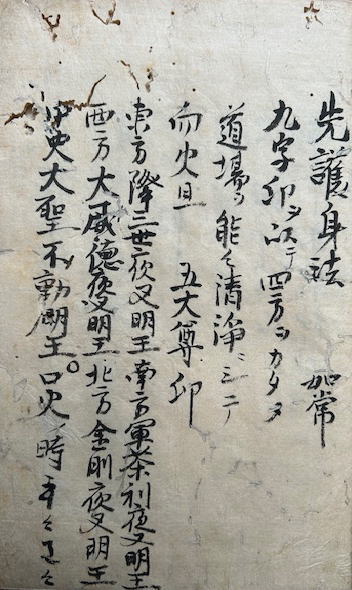 先護身法　如常
九字印ヲ以テ四方ヲカタメ
道場ヲ能々清浄ニシテ
向火且　五大尊印
東方降三世夜叉明王 南方軍荼利夜叉明王
西方大威徳夜叉明王 北方金剛夜叉明王
中央大聖不動明王 口火 時